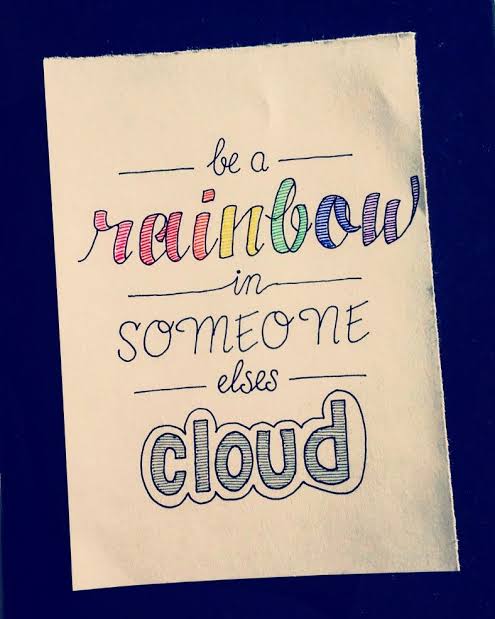 be a
rainbow
in
SOMEONE
elses
cloud